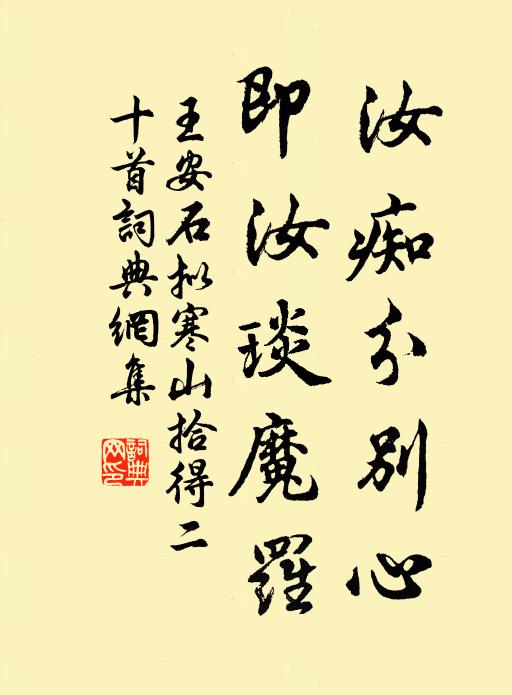 汝痴分別心
即汝琰魔羅
王安石拟寒山拾得二
十首詞典網集
詞典
网印